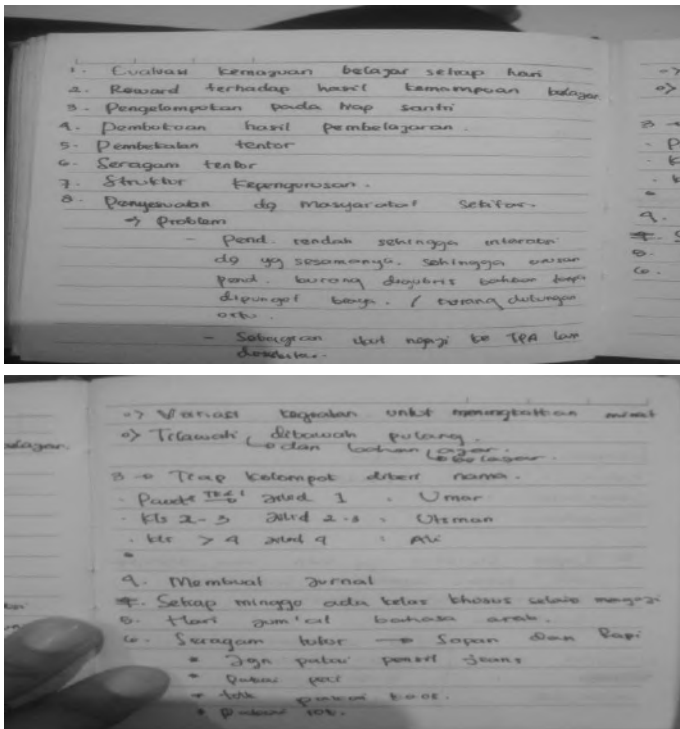 1. Evaluasi kemajuan belajar setiap hari
2. Reward terhadap hasil kemampuan belajar
3. Pengelompokan pada tiap santri
4. Pembukuan hasil pembelajaran.
5. Pembekalan tentor
6. Seragam tentor
7. Struktur Kepengurusan.
8. Penyesuaian dg masyarakat sekitar.
→ Problem
- Pend. rendah sehingga interaksi
dg yg sesamanya. sehingga urusan
pend. kurang digubris bahkan
dipungut biaya. / kurang dukungan
ortu.
- Sebagian ikut ngaji ke TPA lain
disekitar.
o> Variasi kegiatan untuk meningkatkan minat
o> Tilawati dibawah pulang.
dan bahan
belajar.
3 → Tiap kelompok diberi nama.
- jilid 1 : Umar
- kls 2-3 jilid 2-3 : Utsman
- kls > 4 jilid 4 : Ali
4. Membuat Jurnal
Setiap minggu ada kelas khusus selain mengaji
5. Hari Jum'at bahasa arab.
6. Seragam tutor → Sopan dan Rapi
* Jgn pakai pensil jeans
* Pakai
* tdk pakai kaos.
* Pakai rok.